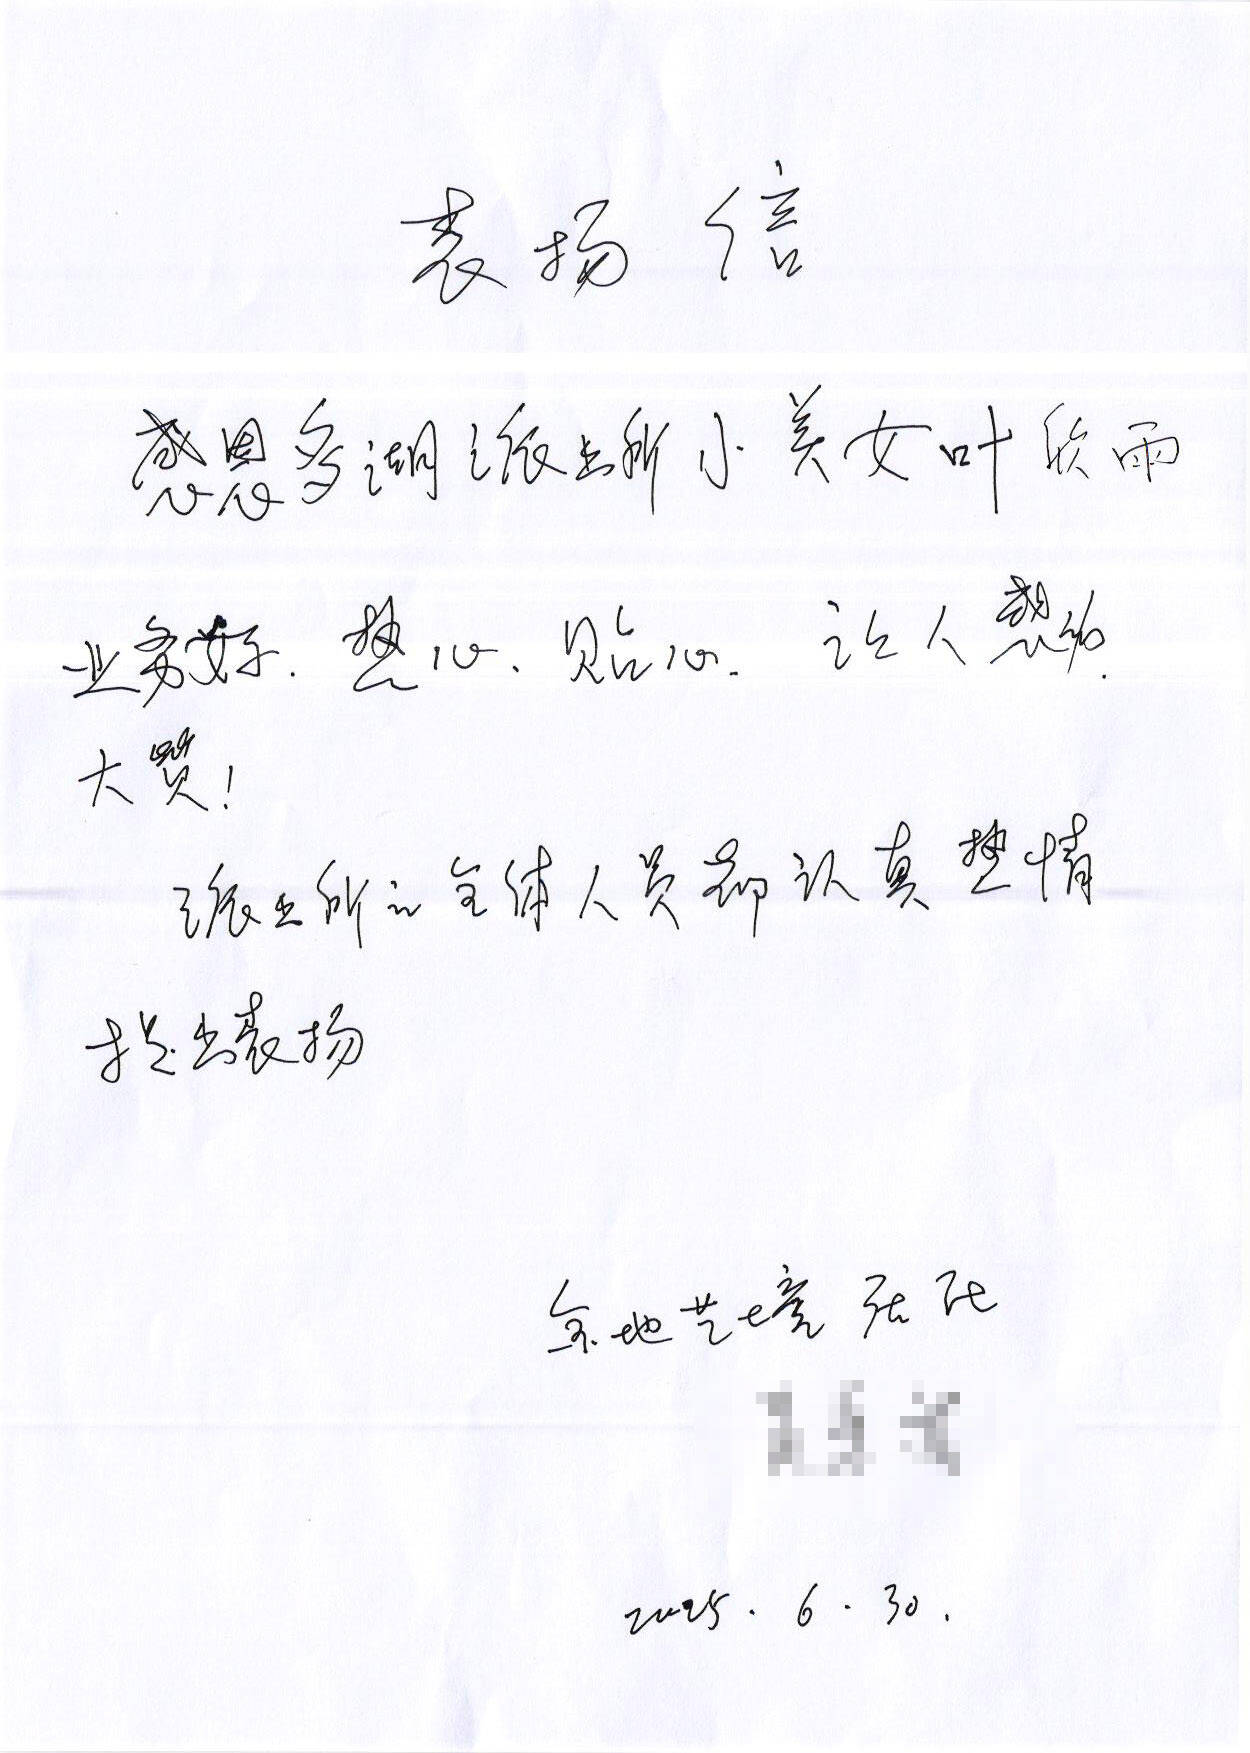 表扬信
感恩多湖派出所小美女叶欣雨
业务好.热心.贴心.让人感动.
大赞!
派出所之全体人员都认真热情
提出表扬
金地艺境
2025.6.30.